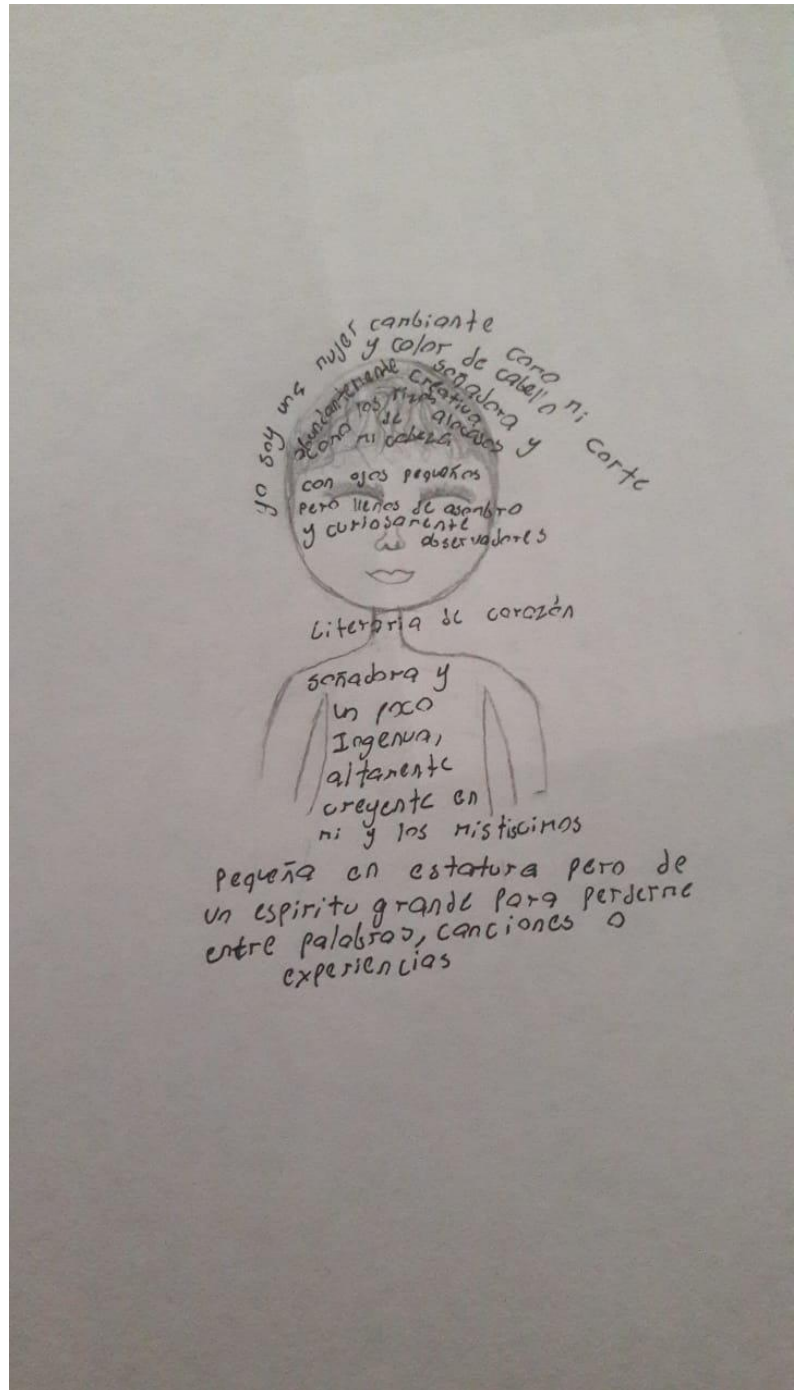 yo soy una mujer cambiante como mi corte
y color de cabello
soñadora y
abundantemente creativa
como los rizos alocados
de
mi cabeza
con ojos pequeños
pero llenos de asombro
y curiosamente
observadores
Literaria de corazón
soñadora y
un poco
Ingenua,
altamente
creyente en
mi y los mistiscimos
pequeña en estatura pero de
un espiritu grande para perderme
entre palabras, canciones o
experiencias